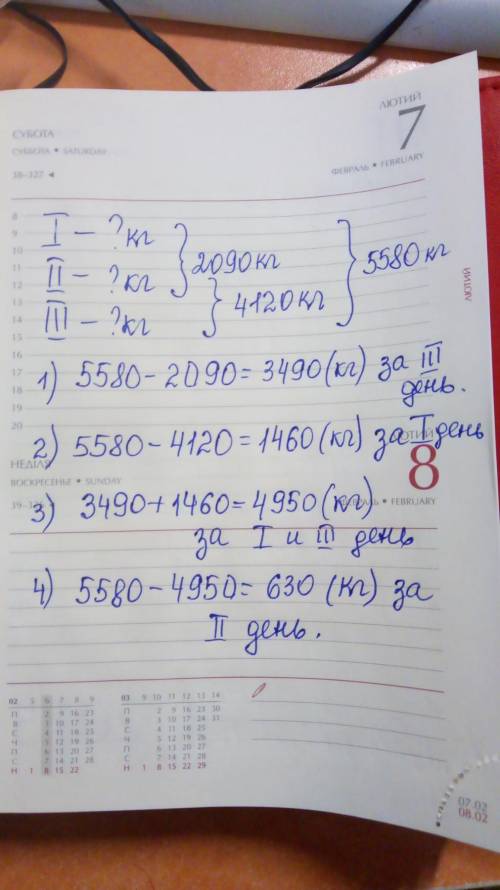 ЛЮТИЙ
7
СУБОТА
СУББОТА • SATURDAY
ФЕВРАЛЬ • FEBRUARY
38–327 ◄
8
9
10
11
12
13
14
15
16
17
18
19
20
I – ? кг
II – ? кг
III – ? кг
2090 кг
4120 кг
5580 кг
ЛЮТИЙ
1) 5580 – 2090 = 3490 (кг) за III
день.
2) 5580 – 4120 = 1460 (кг) за I день
НЕДІЛЯ
8
ВОСКРЕСЕНЬЕ • SUNDAY
ФЕВРАЛЬ • FEBRUARY
3) 3490 + 1460 = 4950 (кг)
за I и III день
4) 5580 – 4950 = 630 (кг) за
II день.
02 5 6 7 8 9
П 2 9 16 23
В 3 10 17 24
С 4 11 18 25
Ч 5 12 19 26
П 6 13 20 27
С 7 14 21 28
Н 1 8 15 22
03 9 10 11 12 13 14
П 2 9 16 23 30
В 3 10 17 24 31
С 4 11 18 25
Ч 5 12 19 26
П 6 13 20 27
С 7 14 21 28
Н 1 8 15 22 29
07.02
08.02